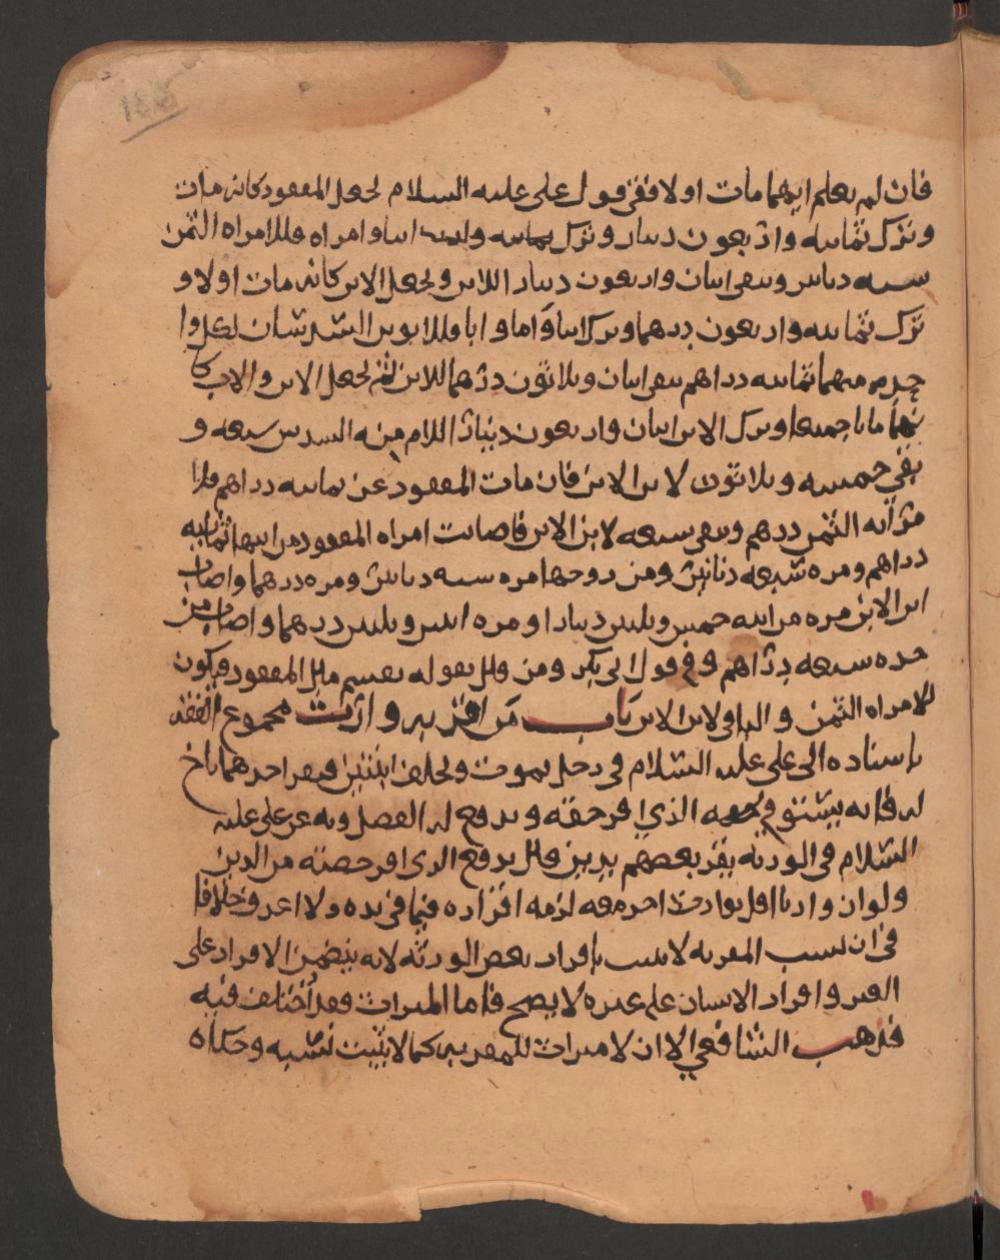 ١٤٥
فان لم يعلم ايهما مات اولا ففي قول علي عليه السلام يجعل المفقود كانه مات
وترك ثمانيه واربعون دينار وترك ابنا وامراه فللامراه الثمن
سته دنانير ويبقى اثنان واربعون دينار اللابن ويجعل الابن كانه مات اولا و
ترك ثمانيه واربعون درهما وترك ابنا واما وابا فللابوين السدسان لكل وا
حد منهما ثمانيه دراهم يبقى اثنان وثلاثون درهما للابن ثم يجعل الابن والاب كا
نهما ماتا جميعا وترك الابن اثنان واربعون دينار اللام منه السدس سبعه و
بقي خمسه وثلاثون لابن الابن فان مات المفقود عن ثمانيه دراهم فلا
مراته الثمن درهم ويبقى سبعه لابن الابن فاصابت امراه المفقود من ابنها ثمانيه
دراهم ومره سبعه دنانير ومن زوجها مره سته دنانير ومره درهما واصاب
ابن الابن مره من ابيه خمس وثلثين دينارا ومره اثنين وثلثين درهما واصاب من
جده سبعه دراهم وفي قول ابي بكر ومن قال بقوله يقسم مال المفقود فيكون
للامراه الثمن والباقي لابن الابن باب من اقر بوارث مجموع الفقه
باسناده الى علي عليه السلام في رجل يموت ويخلف ابنين فيقر احدهما باخ
له فانه يستوفي الذي اقر حقه ويدفع له الفضل وبه عن علي عليه
السلام في الورثه يقر بعضهم بدين قال يدفع الذي اقر حصته من الدين
ولو ان وارثا اقر بوارث اخر معه لزمه اقراره فيما في يده ولا اعرف خلافا
في ان نسب المقر به لا يثبت باقرار بعض الورثه لانه يتضمن الاقرار على
الغير واقرار الانسان على غيره لا يصح فاما الميراث فقد اختلف فيه
فذهب الشافعي الا ان لا ميراث للمقر به كما لا يثبت نسبه وحكاه